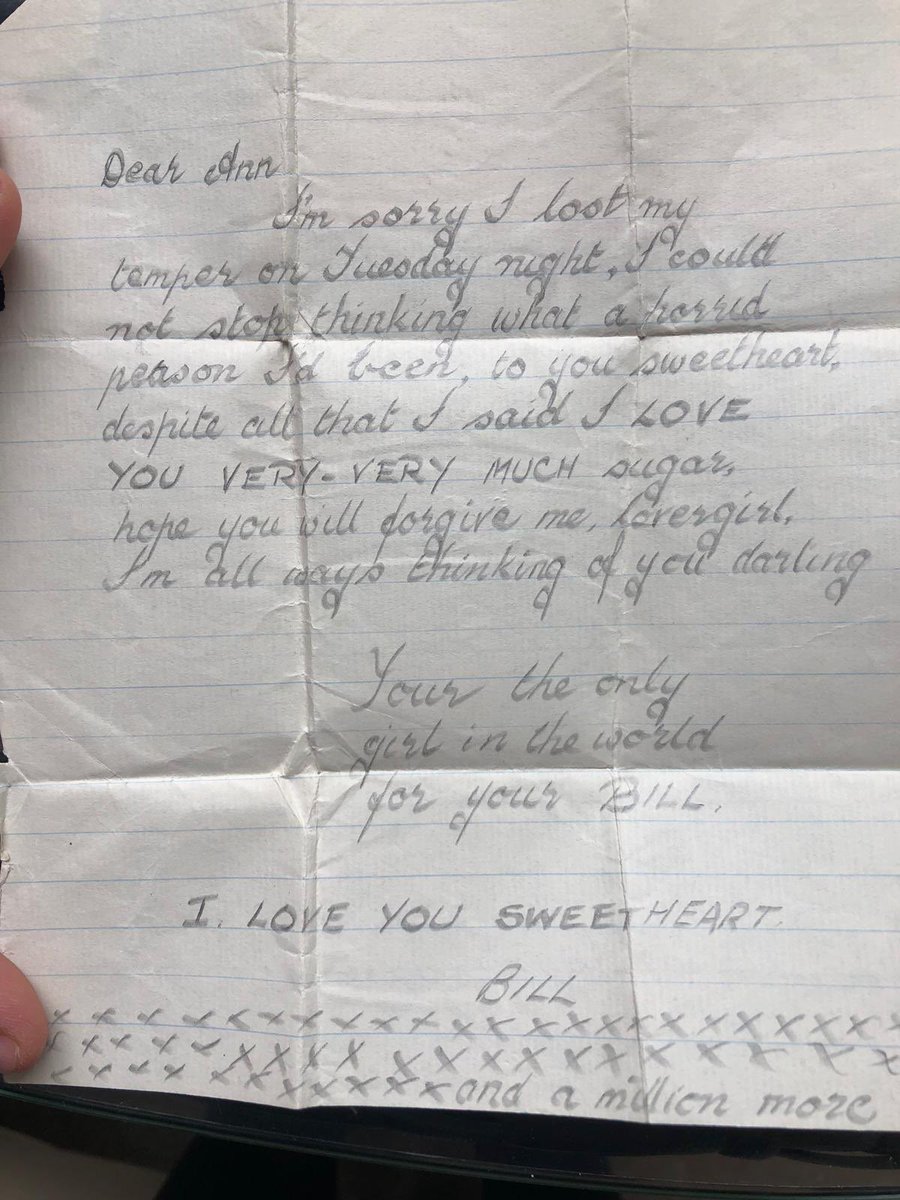 Dear Ann
I'm sorry I lost my
temper on Tuesday night, I could
not stop thinking what a horrid
person I'd been, to you sweetheart,
despite all that I said I LOVE
YOU VERY-VERY MUCH sugar,
hope you will forgive me, lovergirl,
I'm all ways thinking of you darling
Your the only
girl in the world
for your BILL.
I. LOVE YOU SWEETHEART.
BILL
x x x x x x x x x x x x x x x x x x x x x x x x
x x x x x X X X X X X X X X X X X X X X X X
x x x x x x x x x x x x x and a million more